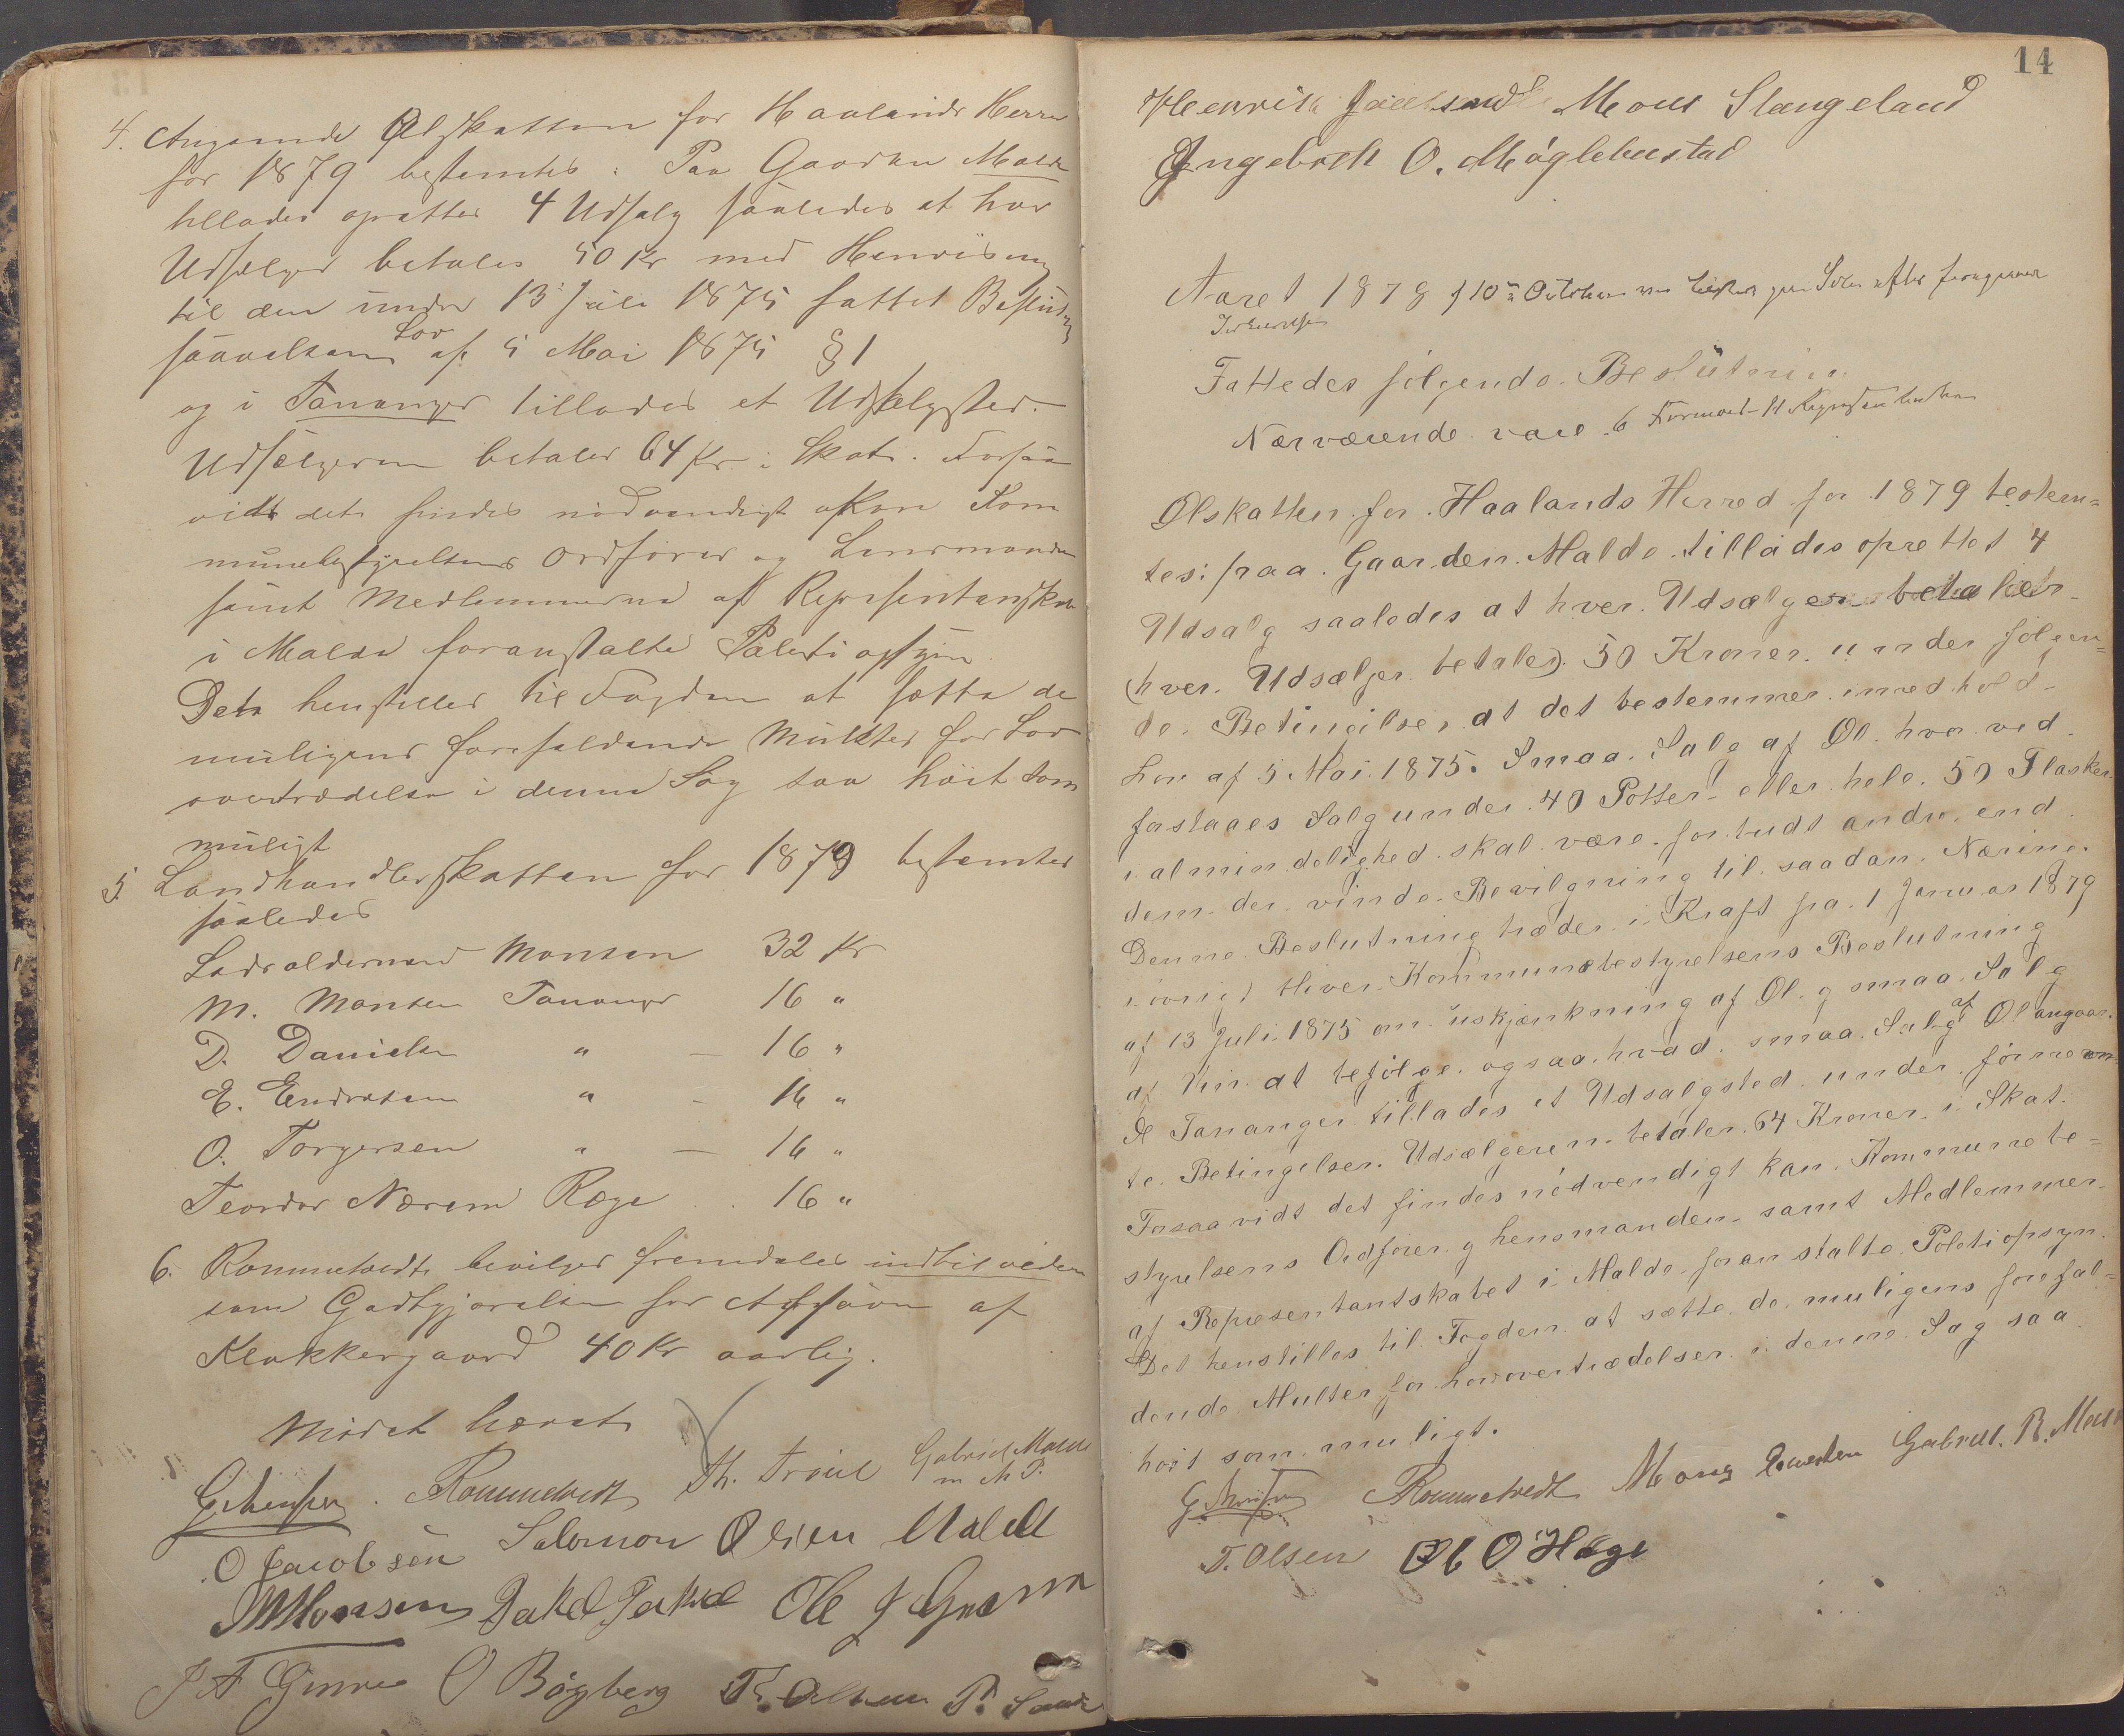 4. Angaaende Ølskatten for Haalands Herre
for 1879 bestemtes: Paa Gaarden Malde
tillades oprættes 4 Udsalg saaledes at hver
Udsælger betales 50 Kr med Henvisning
til den under 13 Juli 1875 fattet Beslutn
saavelsom Lov af 5 Mai 1875 § 1
og i Tananger tillades et Udsælgsted.
Udsælgeren betaler 64 Kr i Skat. Forsaa
vidt det findes nödvendigt kan Kom
munebestyrelsens Ordförer og Lensmanden
samt Medlemmerne af Repræsentantskab
i Malde foranstalte Politiopsyn.
Det henstilles til Fogden at sætte de
muligens forefaldende Mulkter for Lov
overtrædelser i denne Sag saa höit som
muligt
5. Landhandlerskatten for 1879 bestemtes
saaledes
Lodsoldermand Monsen 32 Kr
M. Monsen Tananger 16 "
D. Danielsen " — 16 "
E. Endresen " — 16 "
O. Torgersen " — 16 "
Teodor Nærem Ræge .. 16 "
6. Rommetvedt bevilges fremdeles indtil videre
som Godtgjörelse for Afsavn af
Klokkergaard 40 Kr aarlig.
Mödet hævet
Rommetvedt Th. Gabriel Malde
m. P.
O Jacobsen Salomon Olsen Malde
M Monsen Ole J
J A O Bögberg T. Olsen P.
14
Henrik Mons Stangeland
Ingebreth O. Möglebustad
Aaret 1878 10de October
Fattedes fölgende Beslutning
Nærværende vare 6 Formænd 11 Repræsentanter
Ølskatten for Haalands Herred for 1879 bestem=
tes: paa Gaarden Malde tillades oprettet 4
Udsalg saaledes at hver Udsælger betaler
(hver Udsælger betaler) 50 Kroner under fölgen=
de Betingelser at det bestemmes i medhold
Lov af 5 Mai 1875. Smaa Salg af Øl hvorved
forstaaes Salg under 40 Potter eller hele 50 Flasker
i almindelighed skal være forbudt andre end
dem der vinde Bevilgning til saadan Næring.
Denne Beslutning træder i Kraft fra 1 Januar 1879
i övrigt bliver Kommunebestyrelsens Beslutning
af 13 Juli 1875 om uskjænkning af Øl og smaa Salg
af Vin at beföige ogsaa hvad smaa Salg af Øl angaar.
I Tananger tillades et Udsalgsted under förnevn
te Betingelser. Udsælgeren betaler 64 Kroner i Skat.
Forsaavidt det findes nödvendigt kan Kommunebe=
styrelsens Ordförer og Lensmanden samt Medlemmer
af Repræsentantskabet i Malde foranstalte Politiopsyn.
Det henstilles til Fogden at sætte de muligens forefal=
dende Mulkter for Lovovertrædelser i denne Sag saa
höit som muligt.
Rommetvedt Mons Gabriel. R.
T. Olsen Ole O Hage